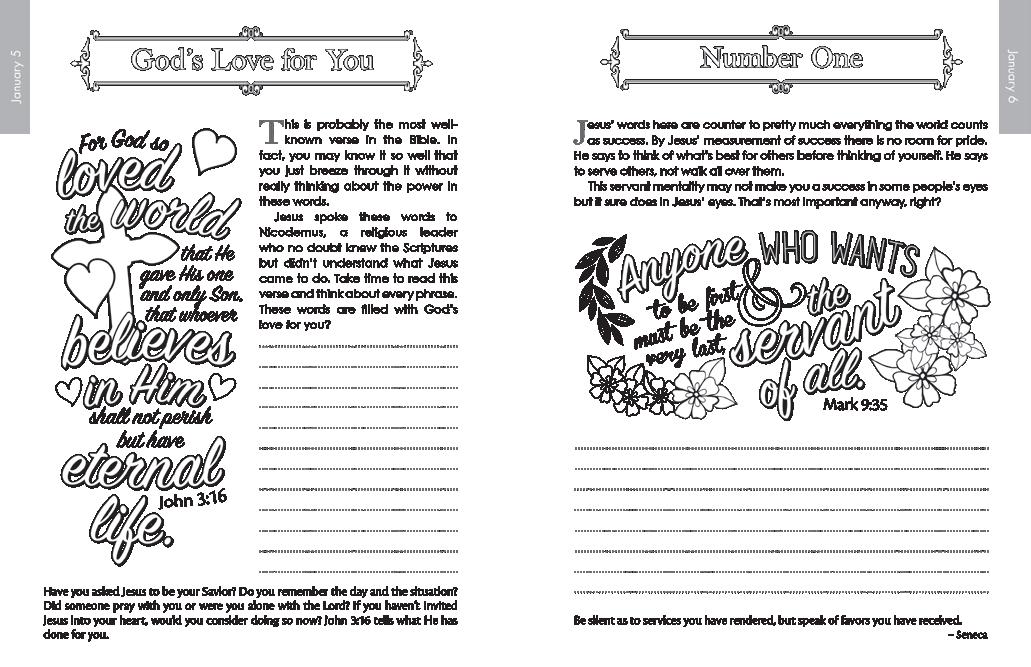 January 5
God's Love for You
For God so
loved
the world
that He
gave His one
and only Son,
that whoever
believes
in Him
shall not perish
but have
eternal
life.
John 3:16
This is probably the most well-
known verse in the Bible. In
fact, you may know it so well that
you just breeze through it without
really thinking about the power in
these words.
Jesus spoke these words to
Nicodemus, a religious leader
who no doubt knew the Scriptures
but didn't understand what Jesus
came to do. Take time to read this
verse and think about every phrase.
These words are filled with God's
love for you?
Have you asked Jesus to be your Savior? Do you remember the day and the situation?
Did someone pray with you or were you alone with the Lord? If you haven't invited
Jesus into your heart, would you consider doing so now? John 3:16 tells what He has
done for you.
January 6
Number One
Jesus' words here are counter to pretty much everything the world counts
as success. By Jesus' measurement of success there is no room for pride.
He says to think of what's best for others before thinking of yourself. He says
to serve others, not walk all over them.
This servant mentality may not make you a success in some people's eyes
but it sure does in Jesus' eyes. That's most important anyway, right?
Anyone WHO WANTS
to be first,
must be the
very last,
& the
servant
of all.
Mark 9:35
Be silent as to services you have rendered, but speak of favors you have received.
– Seneca